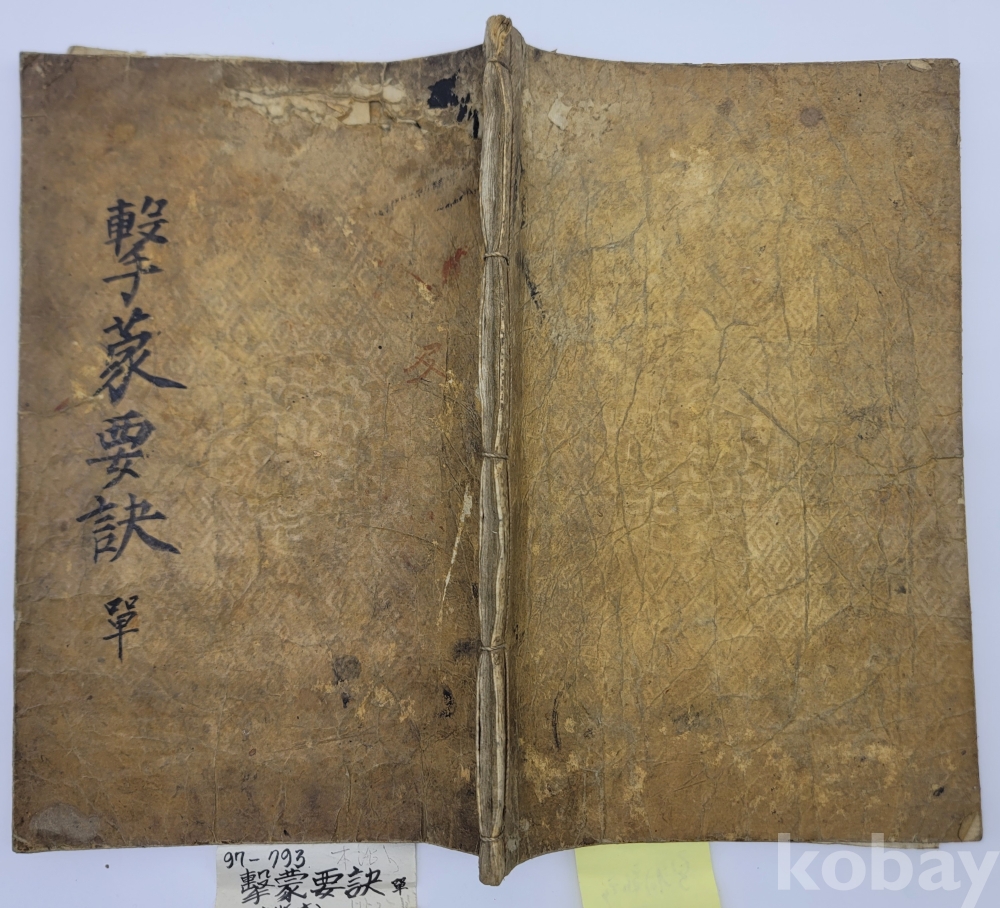 擊蒙要訣 單
97-793
擊蒙要訣 單
kobay